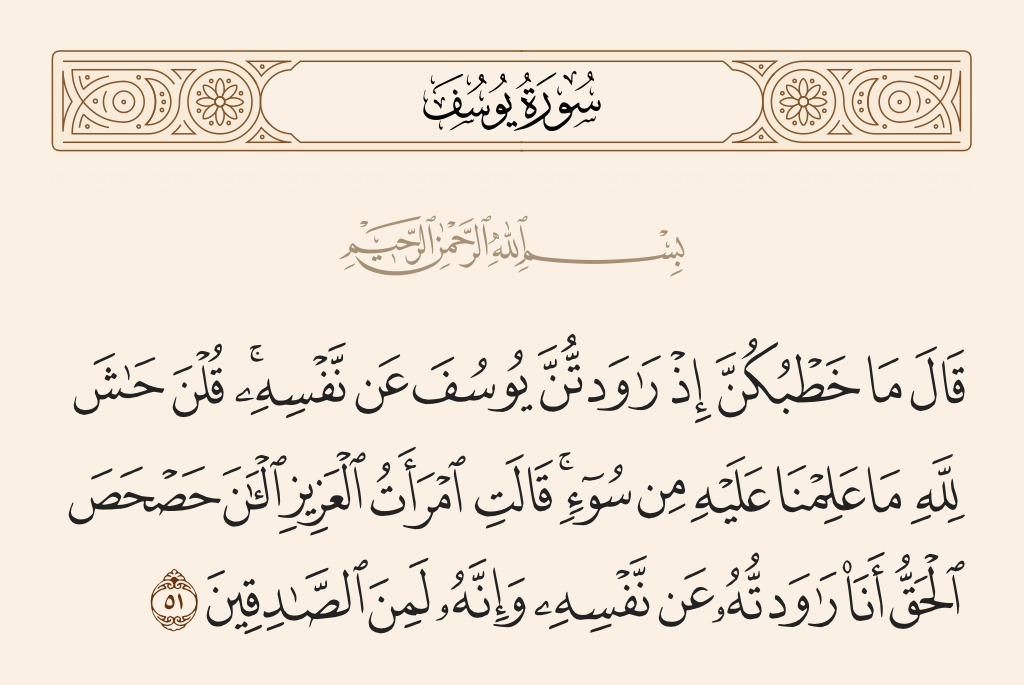 سُورَةُ يُوسُفَ
بِسْمِ ٱللَّهِ ٱلرَّحْمَٰنِ ٱلرَّحِيمِ
قَالَ مَا خَطْبُكُنَّ إِذْ رَٰوَدتُّنَّ يُوسُفَ عَن نَّفْسِهِۦ ۚ قُلْنَ حَـٰشَ
لِلَّهِ مَا عَلِمْنَا عَلَيْهِ مِن سُوٓءٍ ۚ قَالَتِ ٱمْرَأَتُ ٱلْعَزِيزِ ٱلْـَٔـٰنَ حَصْحَصَ
ٱلْحَقُّ أَنَا۠ رَٰوَدتُّهُۥ عَن نَّفْسِهِۦ وَإِنَّهُۥ لَمِنَ ٱلصَّـٰدِقِينَ ٥١